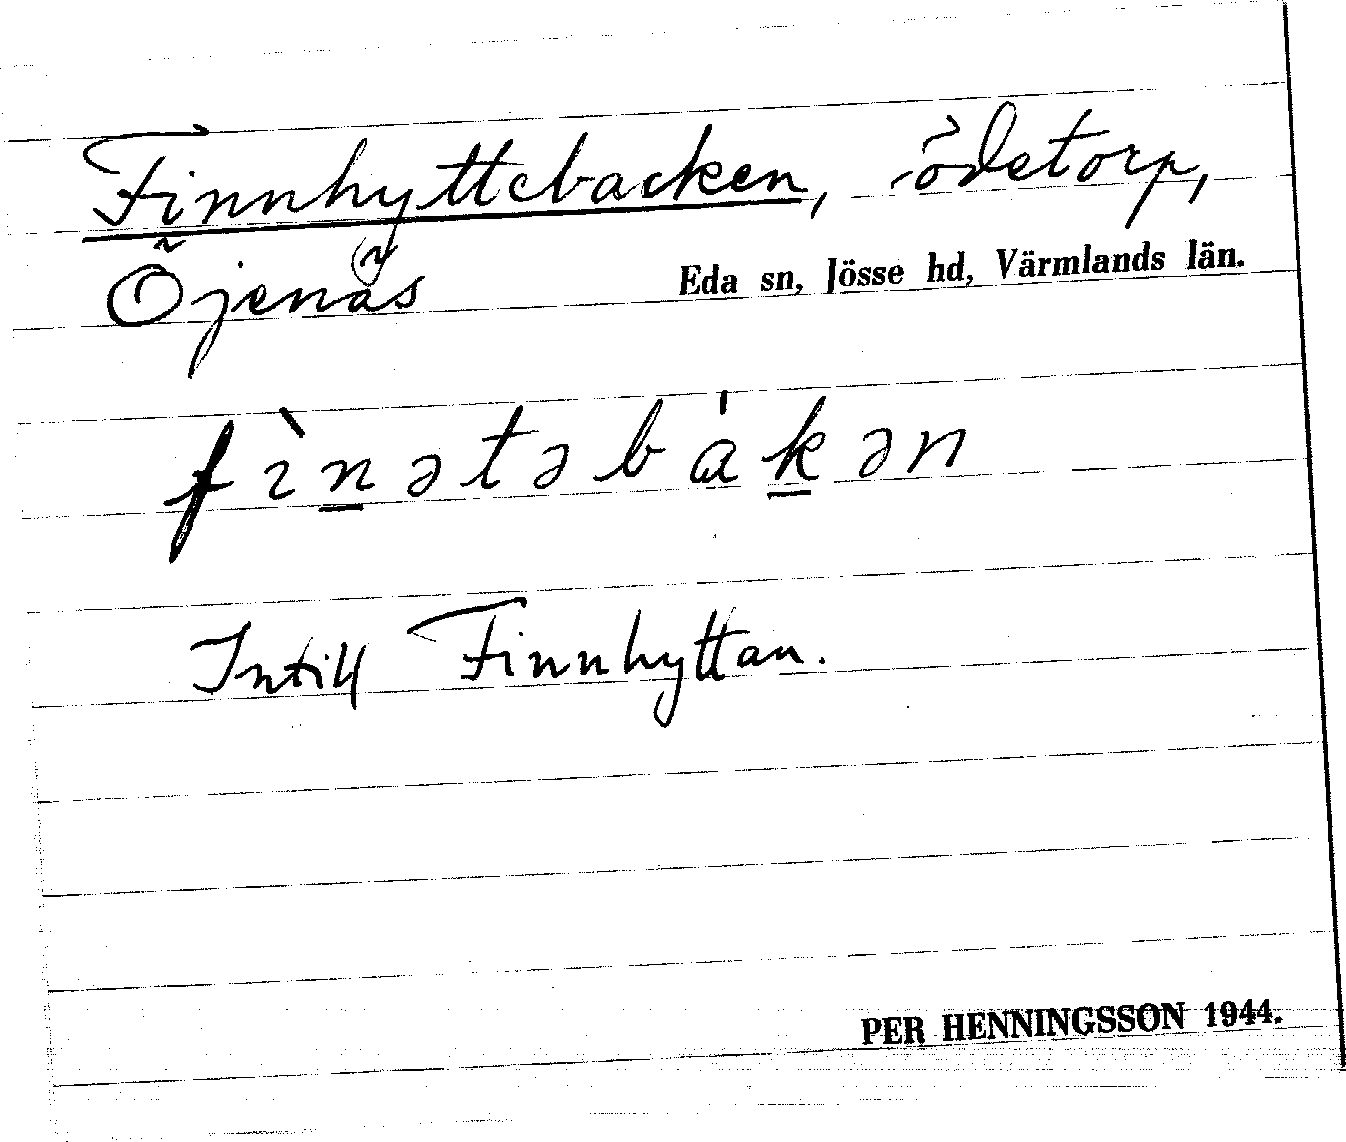 Finnhyttebacken, ödetorp,
Öjenäs
Eda sn, Jösse hd, Värmlands län.
fìn̲ətəbák̲ən
Intill Finnhyttan.
PER HENNINGSSON 1944.